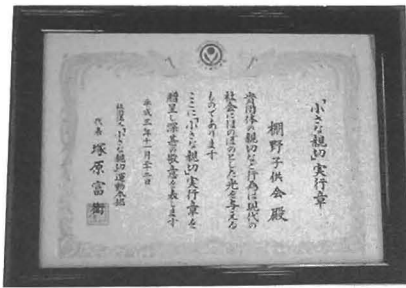 「小さな親切」実行章
棚野子供会 殿
貴団体の親切な行為は現代の
社会にほのぼのとした光を与える
ものであります
ここに「小さな親切」実行章を
贈呈し深甚の敬意を表します
平成三年十一月二十二日
社団法人「小さな親切」運動本部
代表 塚原富衛